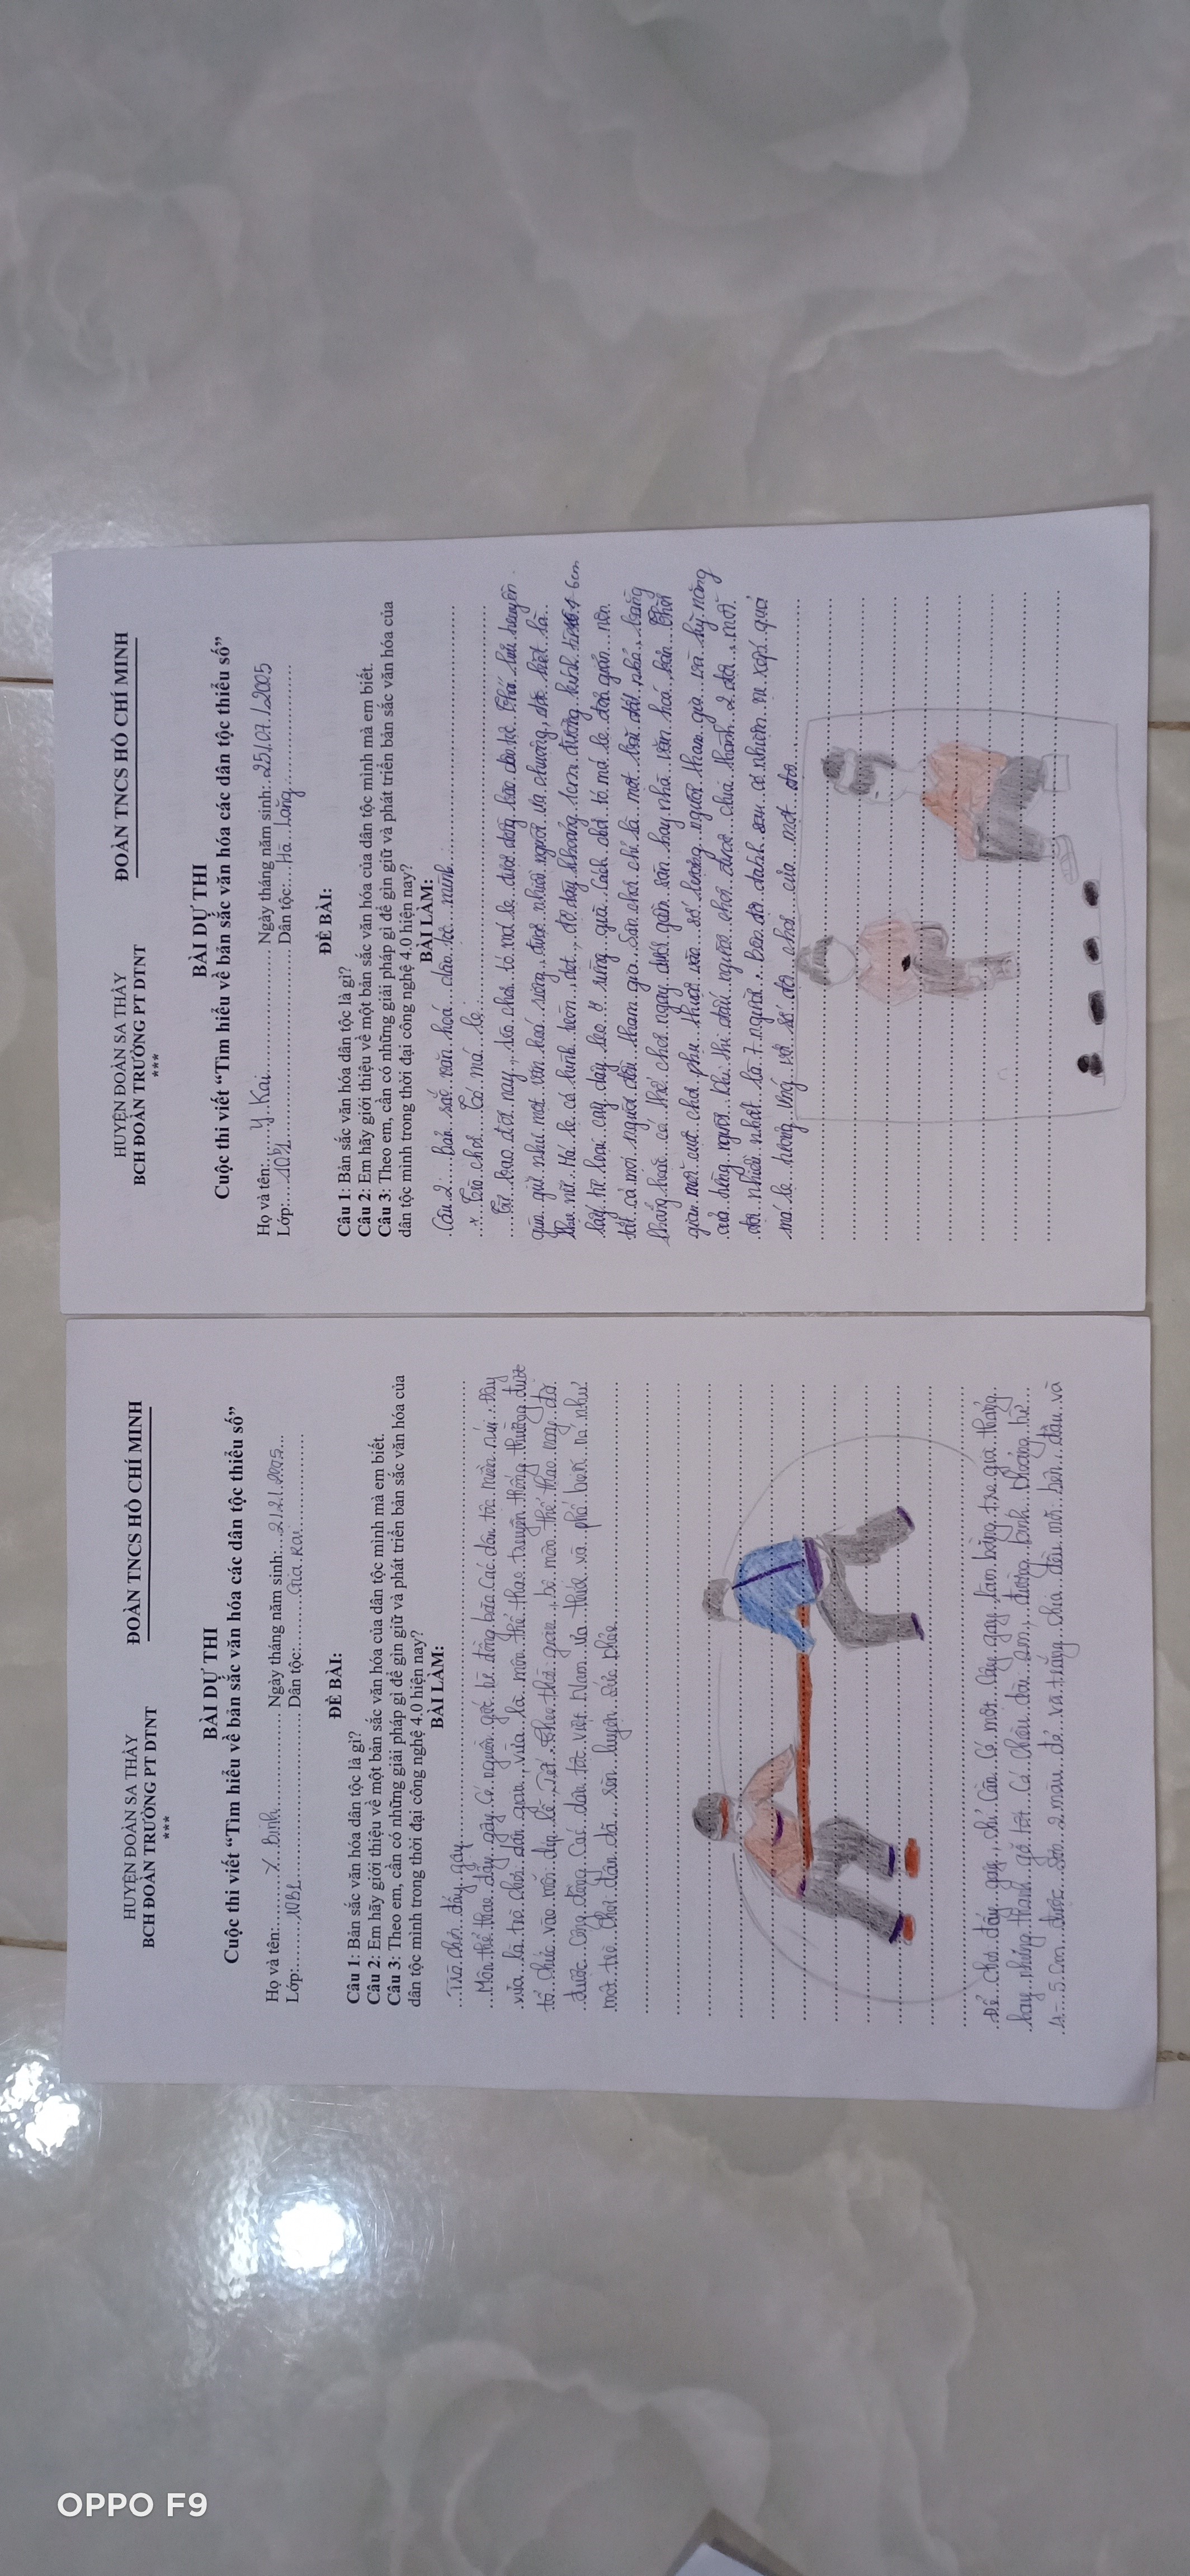 HUYỆN ĐOÀN SA THẦY
BCH ĐOÀN TRƯỜNG PT DTNT
***
ĐOÀN TNCS HỒ CHÍ MINH
BÀI DỰ THI
Cuộc thi viết “Tìm hiểu về bản sắc văn hóa các dân tộc thiểu số”
Họ và tên: Y. Bình Ngày tháng năm sinh: 2/2/2005
Lớp: 10B1 Dân tộc: Gia Rai
ĐỀ BÀI:
Câu 1: Bản sắc văn hóa dân tộc là gì?
Câu 2: Em hãy giới thiệu về một bản sắc văn hóa của dân tộc mình mà em biết.
Câu 3: Theo em, cần có những giải pháp gì để gìn giữ và phát triển bản sắc văn hóa của
dân tộc mình trong thời đại công nghệ 4.0 hiện nay?
BÀI LÀM:
Trò chơi đẩy gậy
Môn thể thao đẩy gậy có nguồn gốc từ đồng bào các dân tộc miền núi. Đây
vừa là trò chơi dân gian, vừa là môn thể thao truyền thống thường được
tổ chức vào mỗi dịp lễ, Tết. Theo thời gian, bộ môn thể thao này đã
được cộng đồng các dân tộc Việt Nam ưa thích và phổ biến nó như
một trò chơi dân dã rèn luyện sức khỏe
Để chơi đẩy gậy, chỉ cần có một cây gậy làm bằng tre già thẳng
hay những thanh gỗ tốt. Có chiều dài 2m, đường kính khoảng từ
4-5cm được sơn 2 màu đỏ và trắng chia đều mỗi bên, đầu và
HUYỆN ĐOÀN SA THẦY
BCH ĐOÀN TRƯỜNG PT DTNT
***
ĐOÀN TNCS HỒ CHÍ MINH
BÀI DỰ THI
Cuộc thi viết “Tìm hiểu về bản sắc văn hóa các dân tộc thiểu số”
Họ và tên: Y Kai Ngày tháng năm sinh: 25/07/2005
Lớp: Dân tộc: Hà Lăng
ĐỀ BÀI:
Câu 1: Bản sắc văn hóa dân tộc là gì?
Câu 2: Em hãy giới thiệu về một bản sắc văn hóa của dân tộc mình mà em biết.
Câu 3: Theo em, cần có những giải pháp gì để gìn giữ và phát triển bản sắc văn hóa của
dân tộc mình trong thời đại công nghệ 4.0 hiện nay?
BÀI LÀM:
Câu 2: Bản sắc văn hoá dân tộc mình
* Trò chơi Tó má lẹ
Từ bao đời nay, trò chơi tó má lẹ được đồng bào dân tộc Thái lưu truyền
gìn giữ như một văn hoá sống được nhiều người ưa chuộng, đặc biệt là
phụ nữ. Má lẹ có hình tròn, dẹt, độ dày khoảng 1cm đường kính 4-6cm
lấy từ loại cây dây leo ở rừng già. Cách chơi tó má lẹ đơn giản nên
tất cả mọi người đều tham gia. Sân chơi chỉ là một bãi đất nhỏ, bằng
phẳng hoặc có thể chơi ngay dưới gầm sàn hay nhà văn hoá bản. Thời
gian mỗi cuộc chơi phụ thuộc vào số lượng người tham gia và kỹ năng
của từng người. Khi thi đấu người chơi được chia thành 2 đội, mỗi
đội nhiều nhất là 7 người. Bên đội đánh sau có nhiệm vụ xếp quả
má lẹ tương ứng với số đội chơi của một đội
OPPO F9